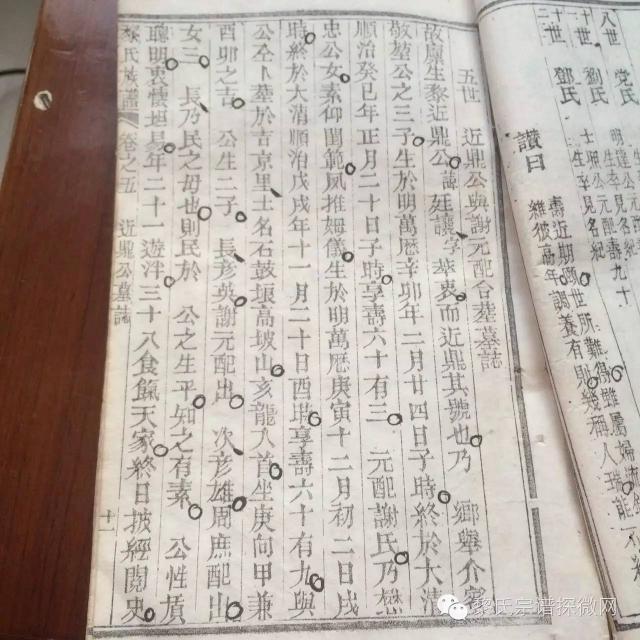 八世 党氏
十世 劉氏
十二世 鄧氏
讃曰
壽近期頤世所難得雖屬婦
維彼高年調養有則幾神人瑞能
五世 近鼎公與謝元配合塟墓誌
故廩生黎近鼎公諱廷議字華衷而近鼎其號也乃 鄉舉介賓
敬堃公之三子生於明萬曆辛卯年二月廿四日子時終於大清
順治癸巳年正月二十日子時享壽六十有三 元配謝氏乃懋
忠公女素仰閨範夙推姆儀生於明萬曆庚寅十二月初二日戌
時終於大清順治戊戌年十一月二十日酉時享壽六十有九與
公仝卜塟於吉京里土名石鼓塸高坡山亥龍入首坐庚向甲兼
酉卯之吉 公生二子 長彦英謝元配出 次彦雄周庶配出
女三 長乃民之母也則民於 公之生平知之有素 公性質
聰明衷懷坦易年二十一遊泮三十八食餼天家終日披經閱史
黎氏族譜 卷之五 近鼎公墓誌 十一
黎氏宗谱探微网